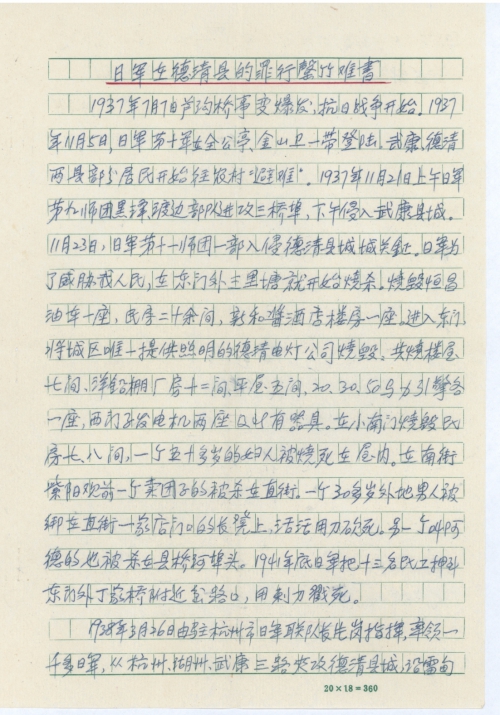 日军在德清县的罪行罄竹难书
1937年7月7日芦沟桥事变爆发,抗日战争开始。1937
年11月5日,日军第十军在全公亭,金山卫一带登陆。武康,德清
两县部分居民开始往农村“避难”。1937年11月21日上午日军
第九师团黑泽渡边部队进攻三桥埠,下午侵入武康县城。
11月23日,日军第十一师团一部入侵德清县城城关镇。日军为
了威胁我人民,在东门外土里塘就开始烧杀。烧毁恒昌
油车一座,民房二十余间,新和酱酒店楼房一座。进入东门,
将城区唯一提供照明的德清电灯公司烧毁。共烧楼屋
七间、洋铅棚厂房十二间,平屋五间,20、30、50马力引擎各
一座,西门子发电机两座及所有器具。在小南门烧毁民
房七、八间,一个五十多岁的妇人被烧死在屋内。在南街
紫阳观前一个卖团子的被杀在直街。一个30多岁外地男人被
绑在直街一家店门口的长凳上,活活用刀砍死。另一个叫阿
德的也被杀在县桥河埠头。1941年底日军把十三名民工押到
东门外丁家桥附近岔路口,用刺刀戳死。
1938年3月26日由驻杭州市日军联队长先岗指挥,率领一
千多日军,从杭州、湖州、武康三路夹攻德清县城,沿雷甸
20×18=360